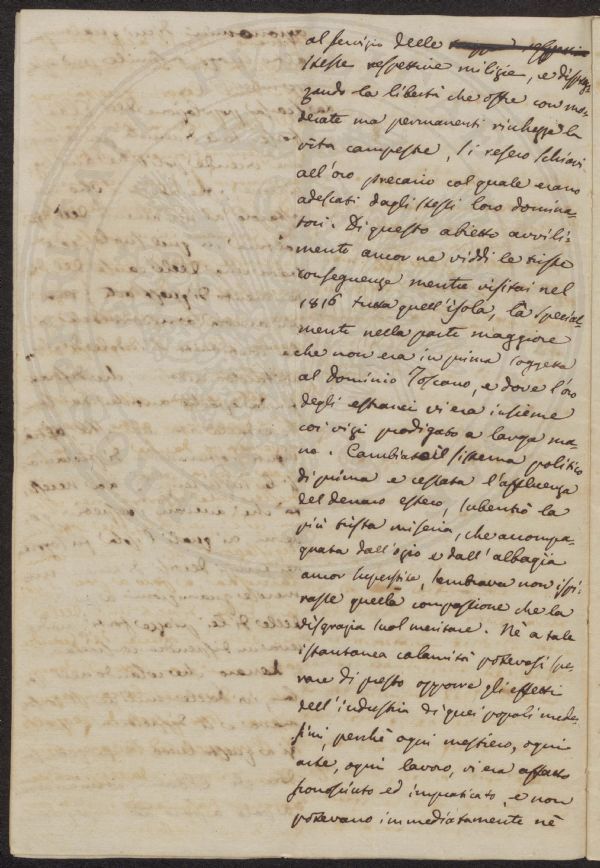 al servizio delle
stesse respettive milizie, e disprez-
zando la libertà che offre con mo-
derate ma permanenti ricchezze la
vita campestre, si resero schiavi
all'oro precario col quale erano
adescati dagli stessi loro domina-
tori. Di questo abietto avvili-
mento ancor ne viddi le triste
conseguenze mentre visitai nel
1816 tutta quell'isola, là special-
mente nella parte maggiore
che non era in prima soggetta
al dominio Toscano, e dove l'oro
degli estranei vi era insieme
coi vizi prodigato a larga ma-
no. Cambiato il sistema politico
di prima e cessata l'affluenza
del denaro estero, subentrò la
più trista miseria, che accompa-
gnata dall'ozio e dall'albagia
ancor superstite, sembrava non ispi-
rasse quella compassione che la
disgrazia suol meritare. Nè a tale
istantanea calamità potevasi spe-
rare di presto opporre gli effetti
dell'industria di quei popoli mede-
simi, perchè ogni mestiero, ogni
arte, ogni lavoro, vi era affatto
sconosciuto ed impraticato, e non
potevano immediatamente nè